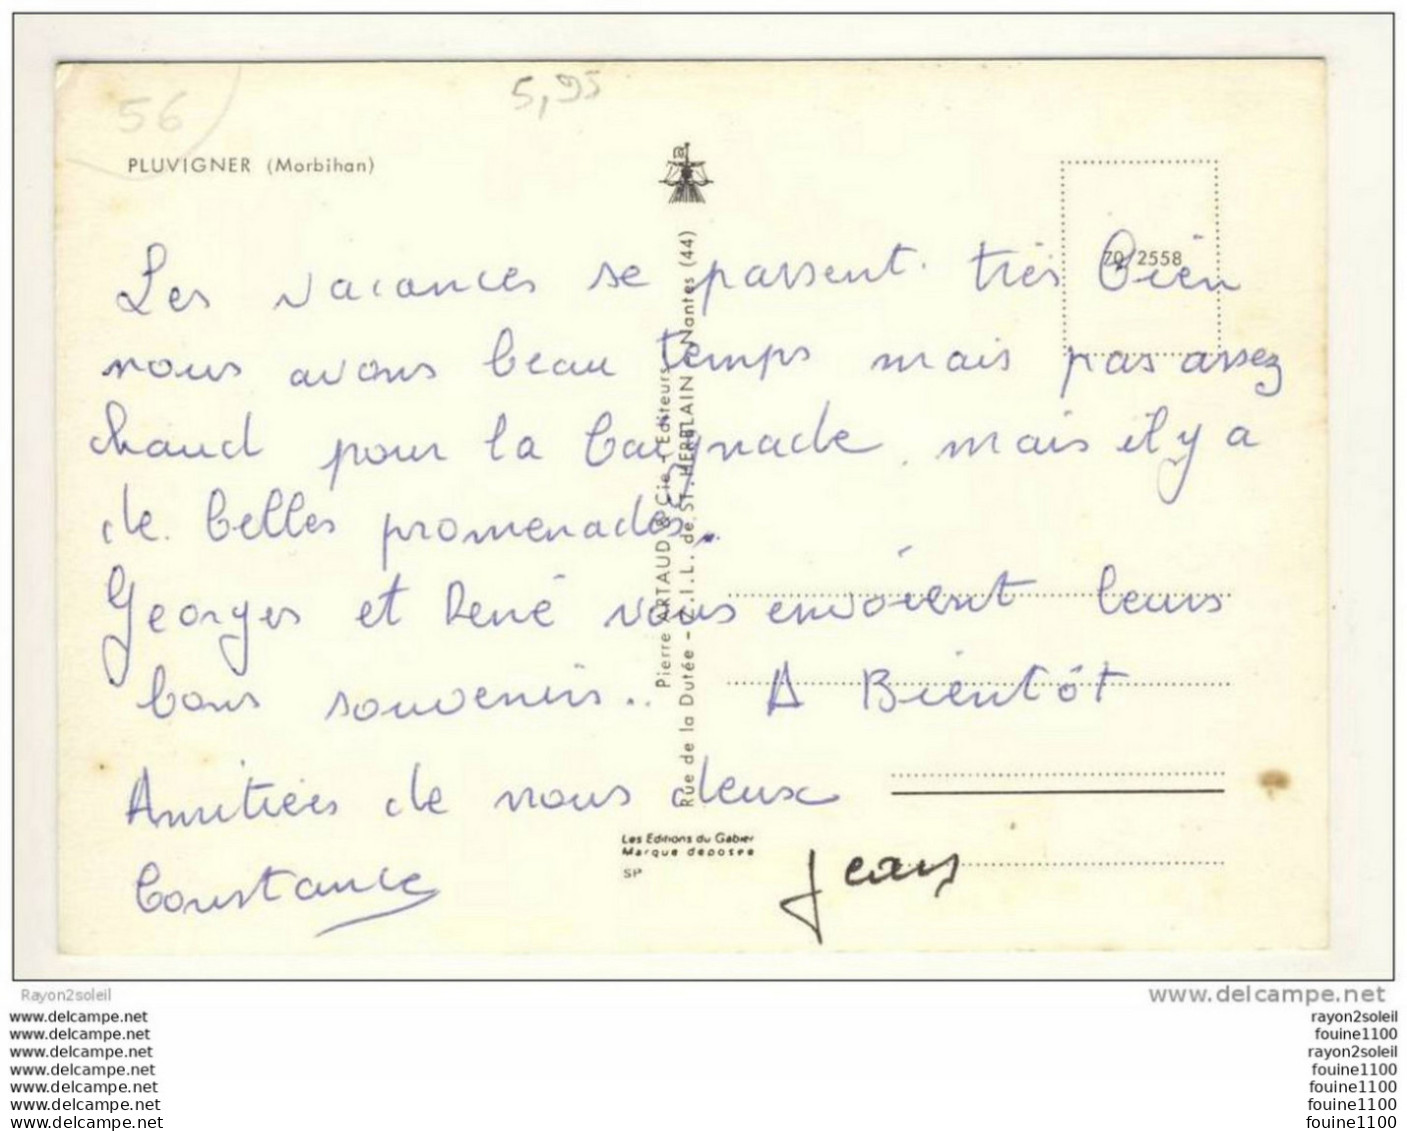 56
5,95
PLUVIGNER (Morbihan)
70 2558
Les vacances se passent très bien
nous avons beau temps mais pas assez
chaud pour la baignade, mais il y a
de belles promenades.
Georges et René vous envoient leurs
bons souvenirs.. A Bientôt
Amitiées de nous deux
Constance
Jean
Pierre ARTAUD & Cie - Editeurs
Rue de la Dutée - Z.I.L. de ST-HERBLAIN - Nantes (44)
Les Editions du Gabier
Marque déposée
SP
Rayon2soleil
www.delcampe.net
www.delcampe.net rayon2soleil
www.delcampe.net fouine1100
www.delcampe.net rayon2soleil
www.delcampe.net fouine1100
www.delcampe.net fouine1100
www.delcampe.net fouine1100
www.delcampe.net fouine1100